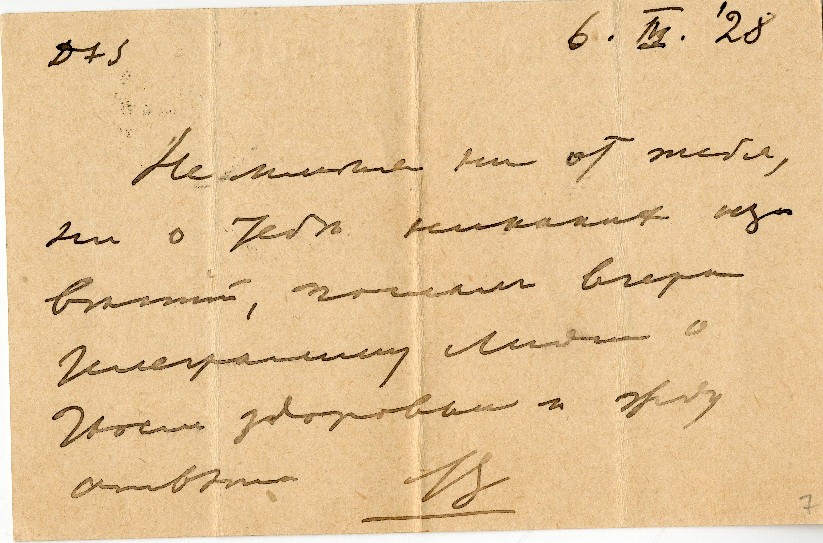 6. III. '28
Не имея ни от тебя,
ни о тебѣ никаких из-
вѣстий, послал вчера
телеграмму Лидии о
твоем здоровьи и жду
отвѣта
7